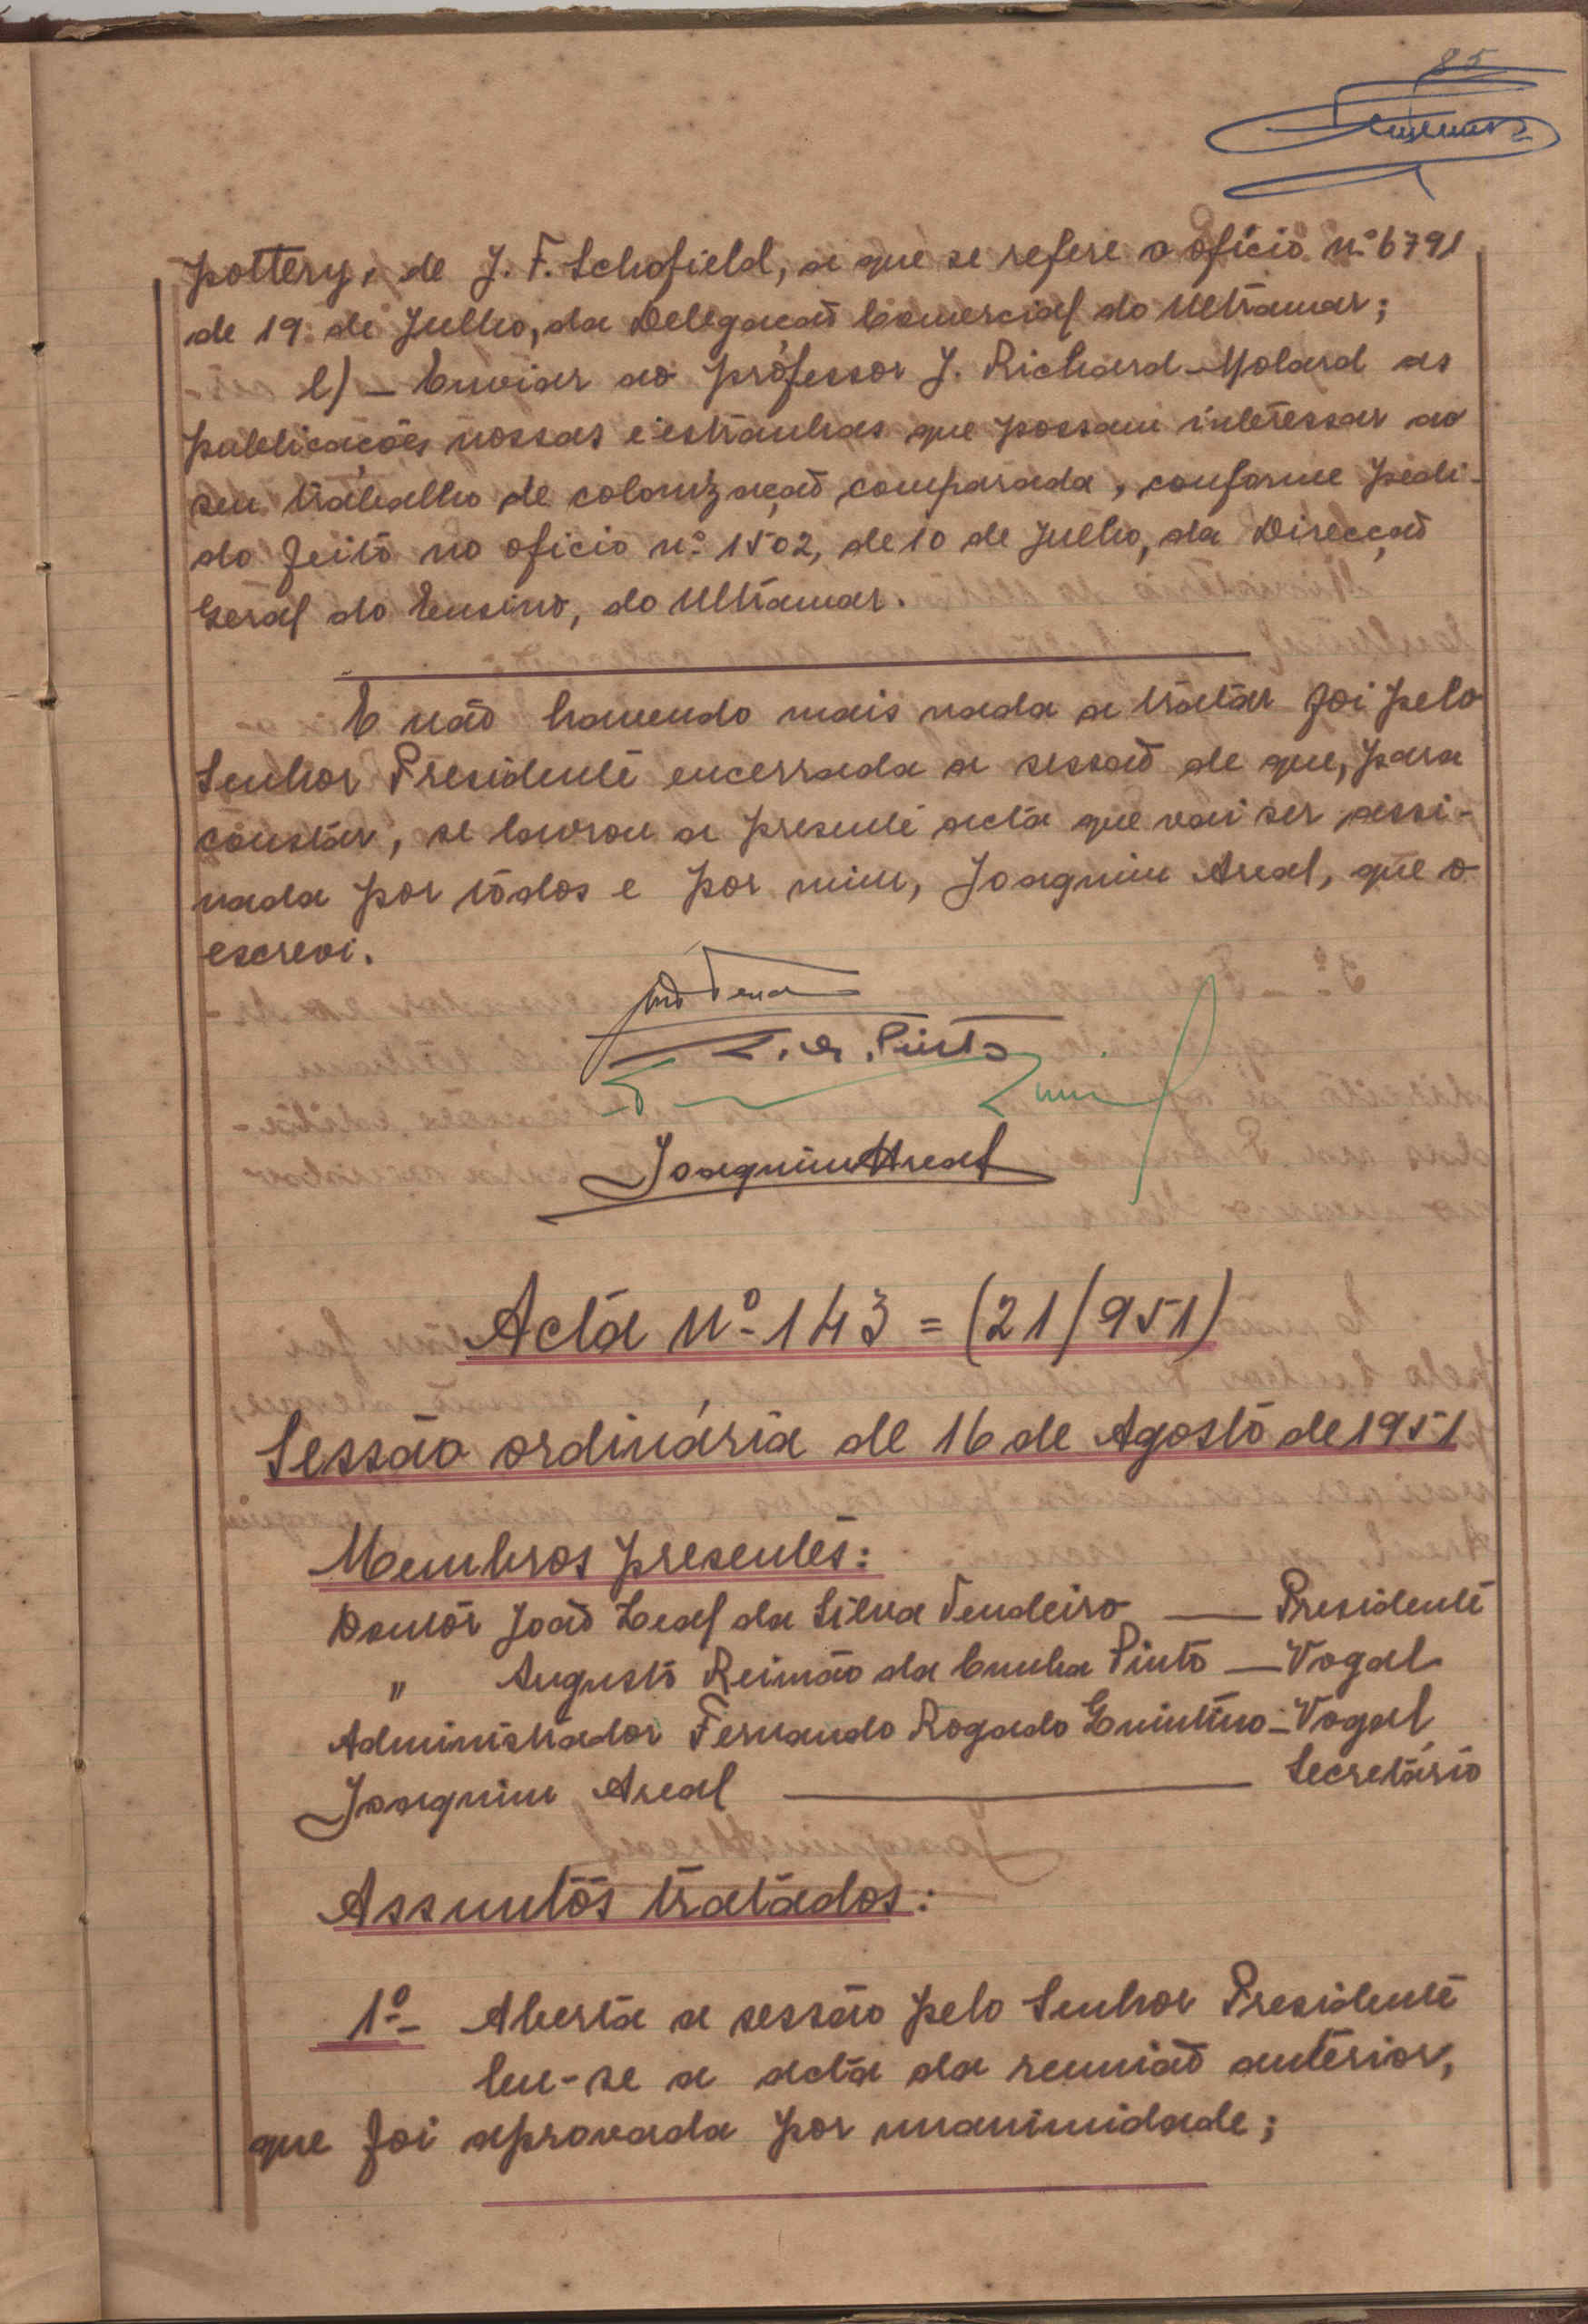 85
pottery, de J. F. Schofield, a que se refere o ofício nº 6791
de 19 de Julho, da Delegação Comercial do Ultramar;
l) — Enviar ao professor J. Richard-Molard as
publicações nossas e estranhas que possam interessar ao
seu trabalho de colonização comparada, conforme pedi-
do feito no oficio nº 1502, de 10 de Julho, da Direcção
Geral do Ensino, do Ultramar.
E não havendo mais nada a tratar foi pelo
Senhor Presidente encerrada a sessão de que, para
constar, se lavrou a presente acta que vai ser assi-
nada por todos e por mim, Joaquim Areal, que o
escrevi.
A. R. Pinto
Joaquim Areal
Acta Nº 143 = (21/951)
Sessão ordinária de 16 de Agosto de 1951
Membros presentes:
Doutor João Leal da Silva Tendeiro — Presidente
" Augusto Reimão da Cunha Pinto — Vogal
Administrador Fernando Rogado Quintino — Vogal
Joaquim Areal — Secretário
Assuntos tratados:
1º — Aberta a sessão pelo Senhor Presidente
leu-se a acta da reunião anterior,
que foi aprovada por unanimidade;